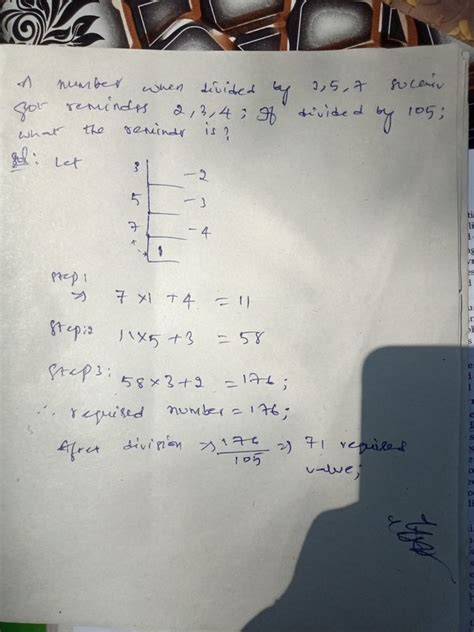 A number when divided by 3,5,7
got reminders 2,3,4; If divided by 105;
what the reminds is?
Sol: Let
3 -2
5 -3
7 -4
1
Step1
⇒ 7 ×1 + 4 = 11
Step:2 11×5 + 3 = 58
Step3: 58 × 3 + 2 = 176;
∴ required number = 176;
After division ⇒ 176/105 ⇒ 71 required
value;